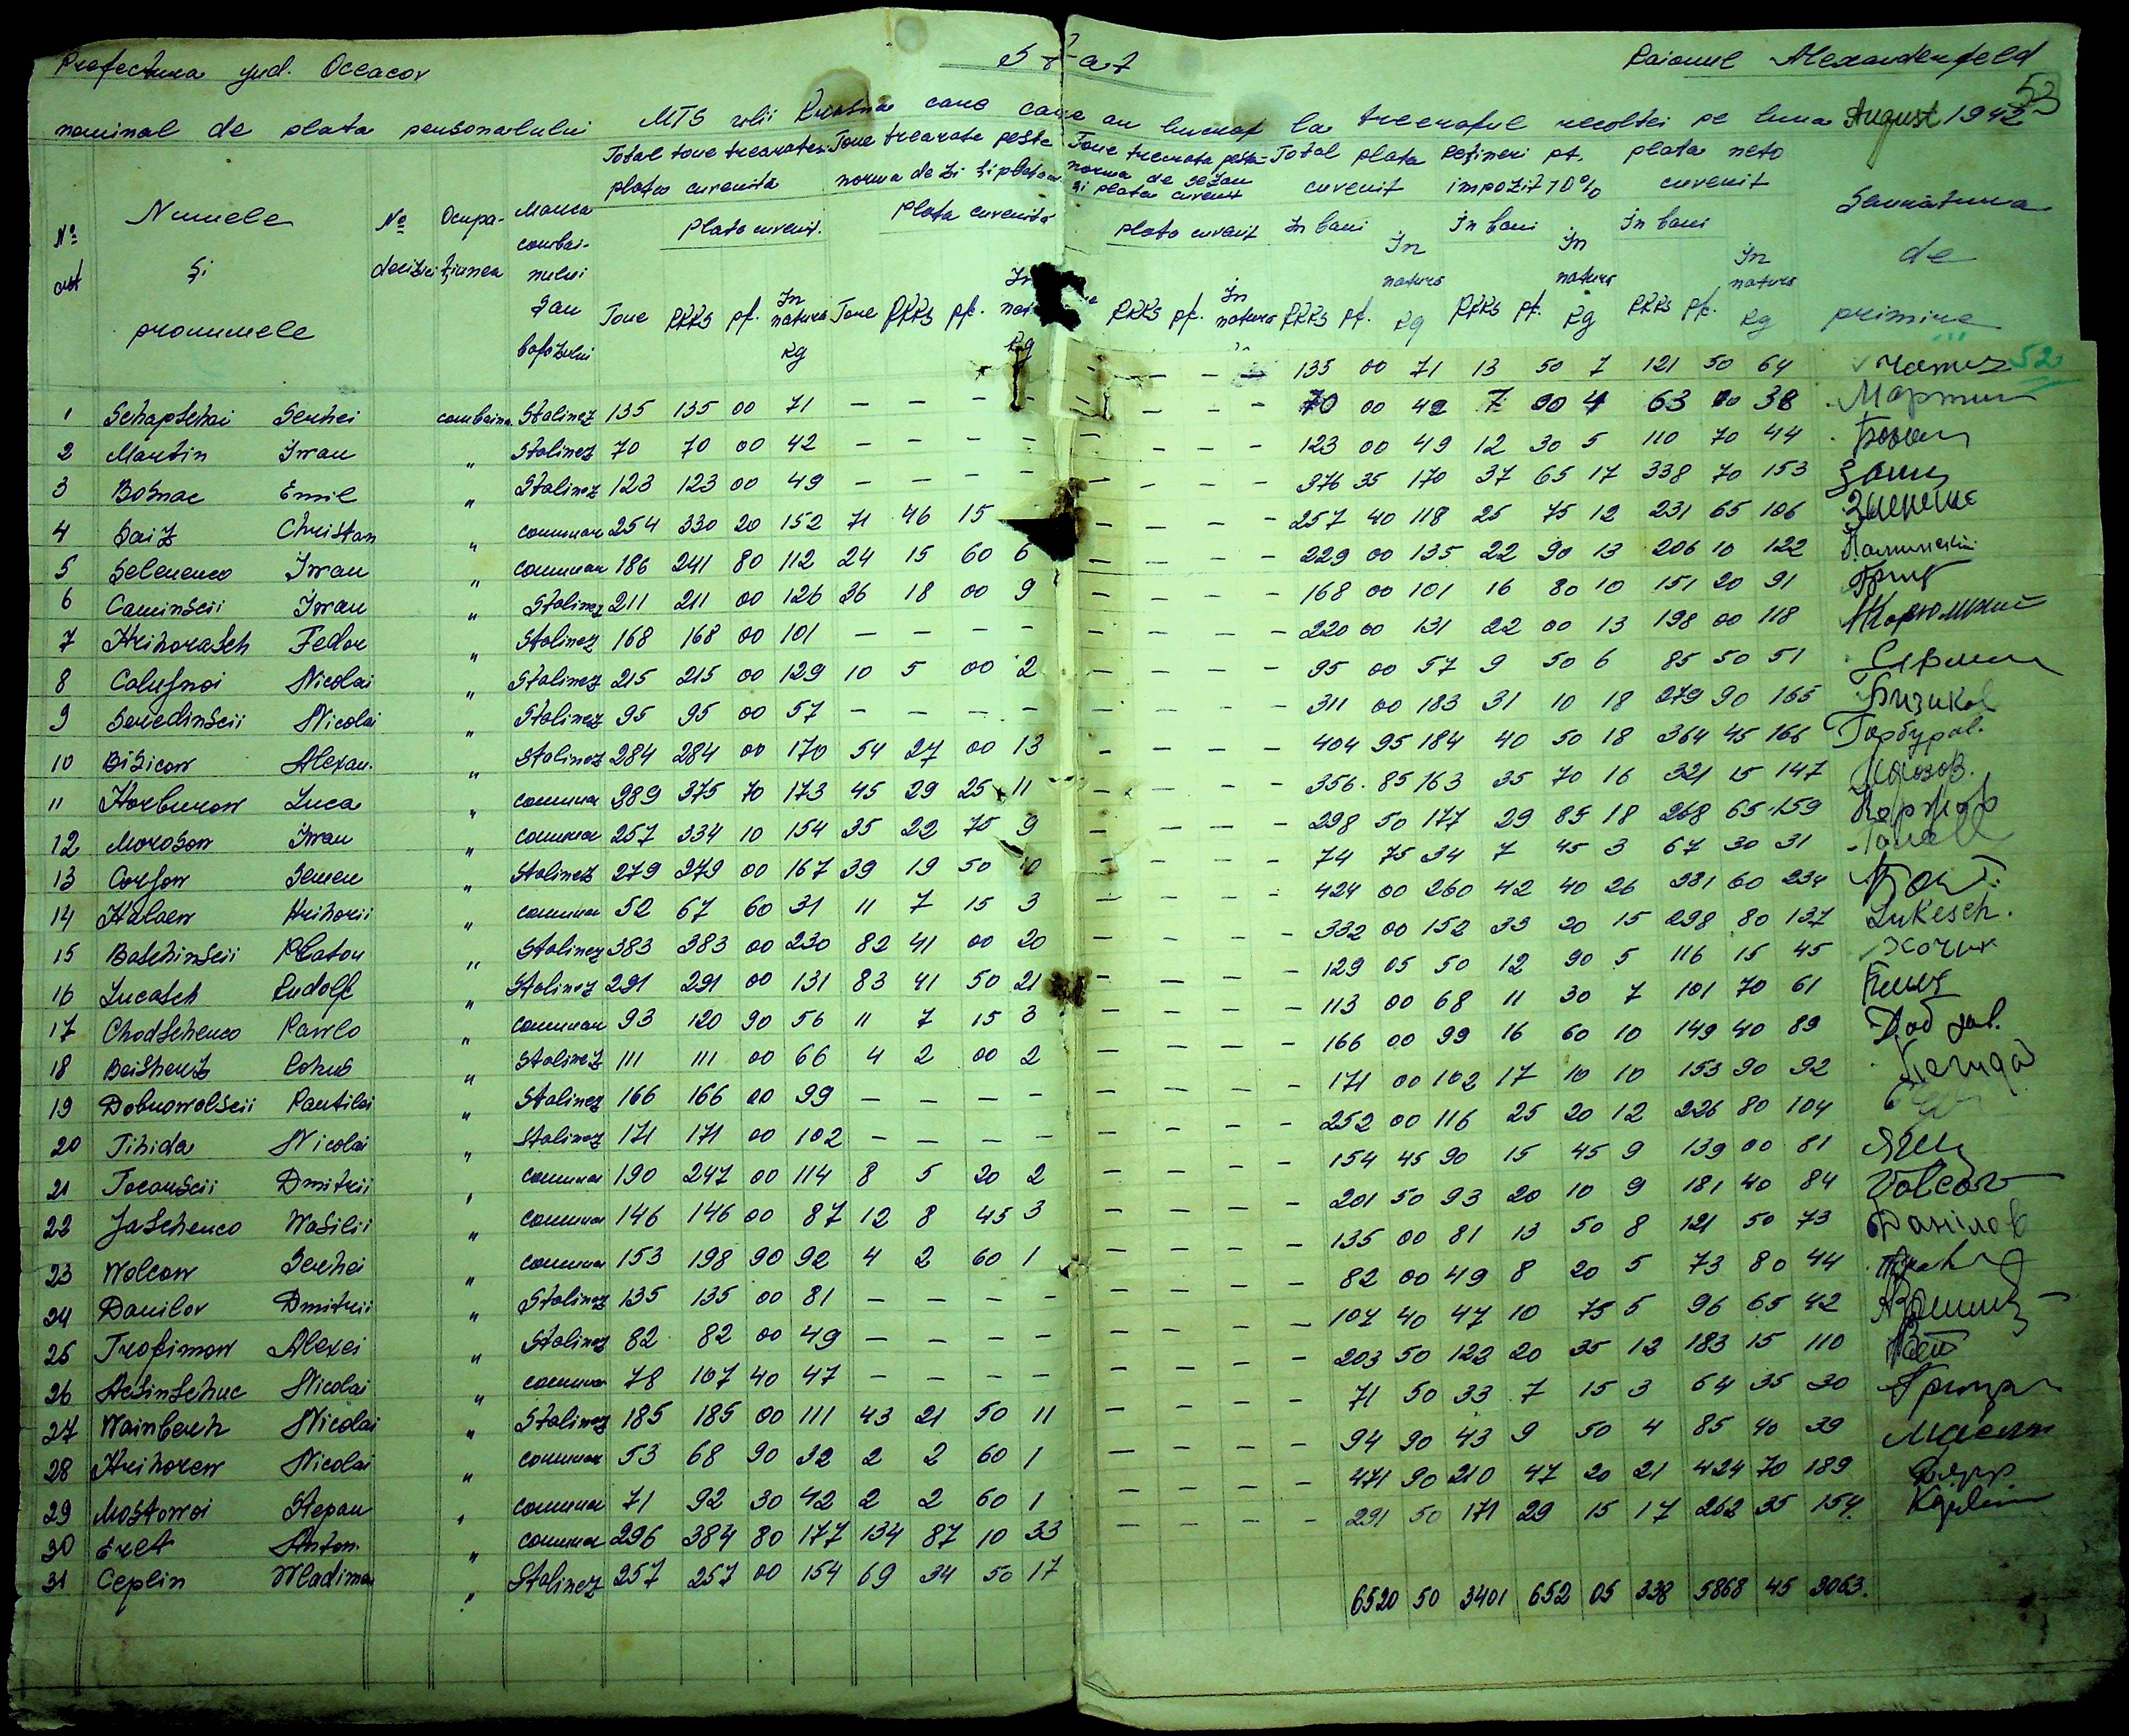 Prefectura jud. Oceacov Stat Raionul Alexanderfeld
53
nominal de plata personalului MTS care au lucrat la treeratul recoltei pe luna August 1942
No crt Numele și pronumele No deciziei Ocupațiunea Marca combainului sau batozului
Total tone treerate plata cuvenita Tone treerate peste norma de zi si plata Tone treerate peste norma de sezon si plata cuvenit Total plata cuvenit Rețineri pt. impozit 10% plata neto cuvenit Semnatura de primire
Plata cuvenit. Plata cuvenită plata cuvenit In bani In natura Kg In bani In natura Kg In bani In natura Kg
Tone RKKS pf. In natura Kg Tone RKKS pf. In Kg RKKS pf. In natura RKKS pf. RKKS pf. RKKS pf.
52
1 Schapschai Serhei combainer Stalinez 135 135 00 71 — — — — — — — — 135 00 71 13 50 7 121 50 64
2 Martin Iwan " Stalinez 70 70 00 42 — — — — — — — — 70 00 42 7 00 4 63 00 38 Мартин
3 Bosnac Emil " Stalinez 123 123 00 49 — — — — — — — — 123 00 49 12 30 5 110 70 44
4 Saiz Christan " commun 254 330 20 152 71 46 15 — — — — 376 35 170 37 65 17 338 70 153
5 Selenenco Iwan " commun 186 241 80 112 24 15 60 6 — — — — 257 40 118 25 75 12 231 65 106
6 Caminscii Iwan " Stalinez 211 211 00 126 36 18 00 9 — — — — 229 00 135 22 90 13 206 10 122
7 Hrihorasch Fedor " Stalinez 168 168 00 101 — — — — — — — — 168 00 101 16 80 10 151 20 91
8 Calujnoi Nicolai " Stalinez 215 215 00 129 10 5 00 2 — — — — 220 00 131 22 00 13 198 00 118
9 Seredinscii Nicolai " Stalinez 95 95 00 57 — — — — — — — — 95 00 57 9 50 6 85 50 51
10 Bizicow Alexan. " Stalinez 284 284 00 170 54 27 00 13 — — — — 311 00 183 31 10 18 279 90 165 Бизиков
11 Horburow Luca " commun 289 375 70 173 45 29 25 11 — — — — 404 95 184 40 50 18 364 45 166 Горбуров.
12 Morosow Iwan " commun 257 334 10 154 35 22 75 9 — — — — 356 85 163 35 70 16 321 15 147 Морозов.
13 Corjow Semen " Stalinez 279 279 00 167 39 19 50 10 — — — — 298 50 177 29 85 18 268 65 159 Коржов
14 Halaew Hrihorii " commun 52 67 60 31 11 7 15 3 — — — — 74 75 34 7 45 3 67 30 31
15 Baschinscii Platon " Stalinez 383 383 00 230 82 41 00 20 — — — — 424 00 260 42 40 26 381 60 234
16 Lucasch Rudolf " Stalinez 291 291 00 131 83 41 50 21 — — — — 332 00 152 33 20 15 298 80 137 Lukesch.
17 Chodschenco Pawlo " commun 93 120 90 56 11 7 15 3 — — — — 129 05 50 12 90 5 116 15 45
18 Beishenz " Stalinez 111 111 00 66 4 2 00 2 — — — — 113 00 68 11 30 7 101 70 61
19 Dobrowolscii Pantilei " Stalinez 166 166 00 99 — — — — — — — — 166 00 99 16 60 10 149 40 89
20 Tihida Nicolai " Stalinez 171 171 00 102 — — — — — — — — 171 00 102 17 10 10 153 90 92
21 Tocanscii Dmitrii " commun 190 247 00 114 8 5 20 2 — — — — 252 00 116 25 20 12 226 80 104
22 Jaschenco Wasilii " commun 146 146 00 87 12 8 45 3 — — — — 154 45 90 15 45 9 139 00 81
23 Wolcow Serhei " commun 153 198 90 92 4 2 60 1 — — — — 201 50 93 20 10 9 181 40 84 Volcov
24 Danilov Dmitrii " Stalinez 135 135 00 81 — — — — — — — — 135 00 81 13 50 8 121 50 73 Данилов
25 Trofimow Alexei " Stalinez 82 82 00 49 — — — — — — — — 82 00 49 8 20 5 73 80 44
26 Acsinschuc Nicolai " commun 78 107 40 47 — — — — — — — — 107 40 47 10 75 5 96 65 42
27 Wainberh Nicolai " Stalinez 185 185 00 111 43 21 50 11 — — — — 203 50 122 20 35 12 183 15 110
28 Hrihorew Nicolai " commun 53 68 90 32 2 2 60 1 — — — — 71 50 33 7 15 3 64 35 30
29 Mostowoi Stepan " commun 71 92 30 42 2 2 60 1 — — — — 94 90 43 9 50 4 85 40 39
30 Eret Anton. " commun 296 384 80 177 134 87 10 33 — — — — 471 90 210 47 20 21 424 70 189
31 Ceplin Wladimir " Stalinez 257 257 00 154 69 34 50 17 — — — — 291 50 171 29 15 17 262 35 154.
6520 50 3401 652 05 338 5868 45 3063.